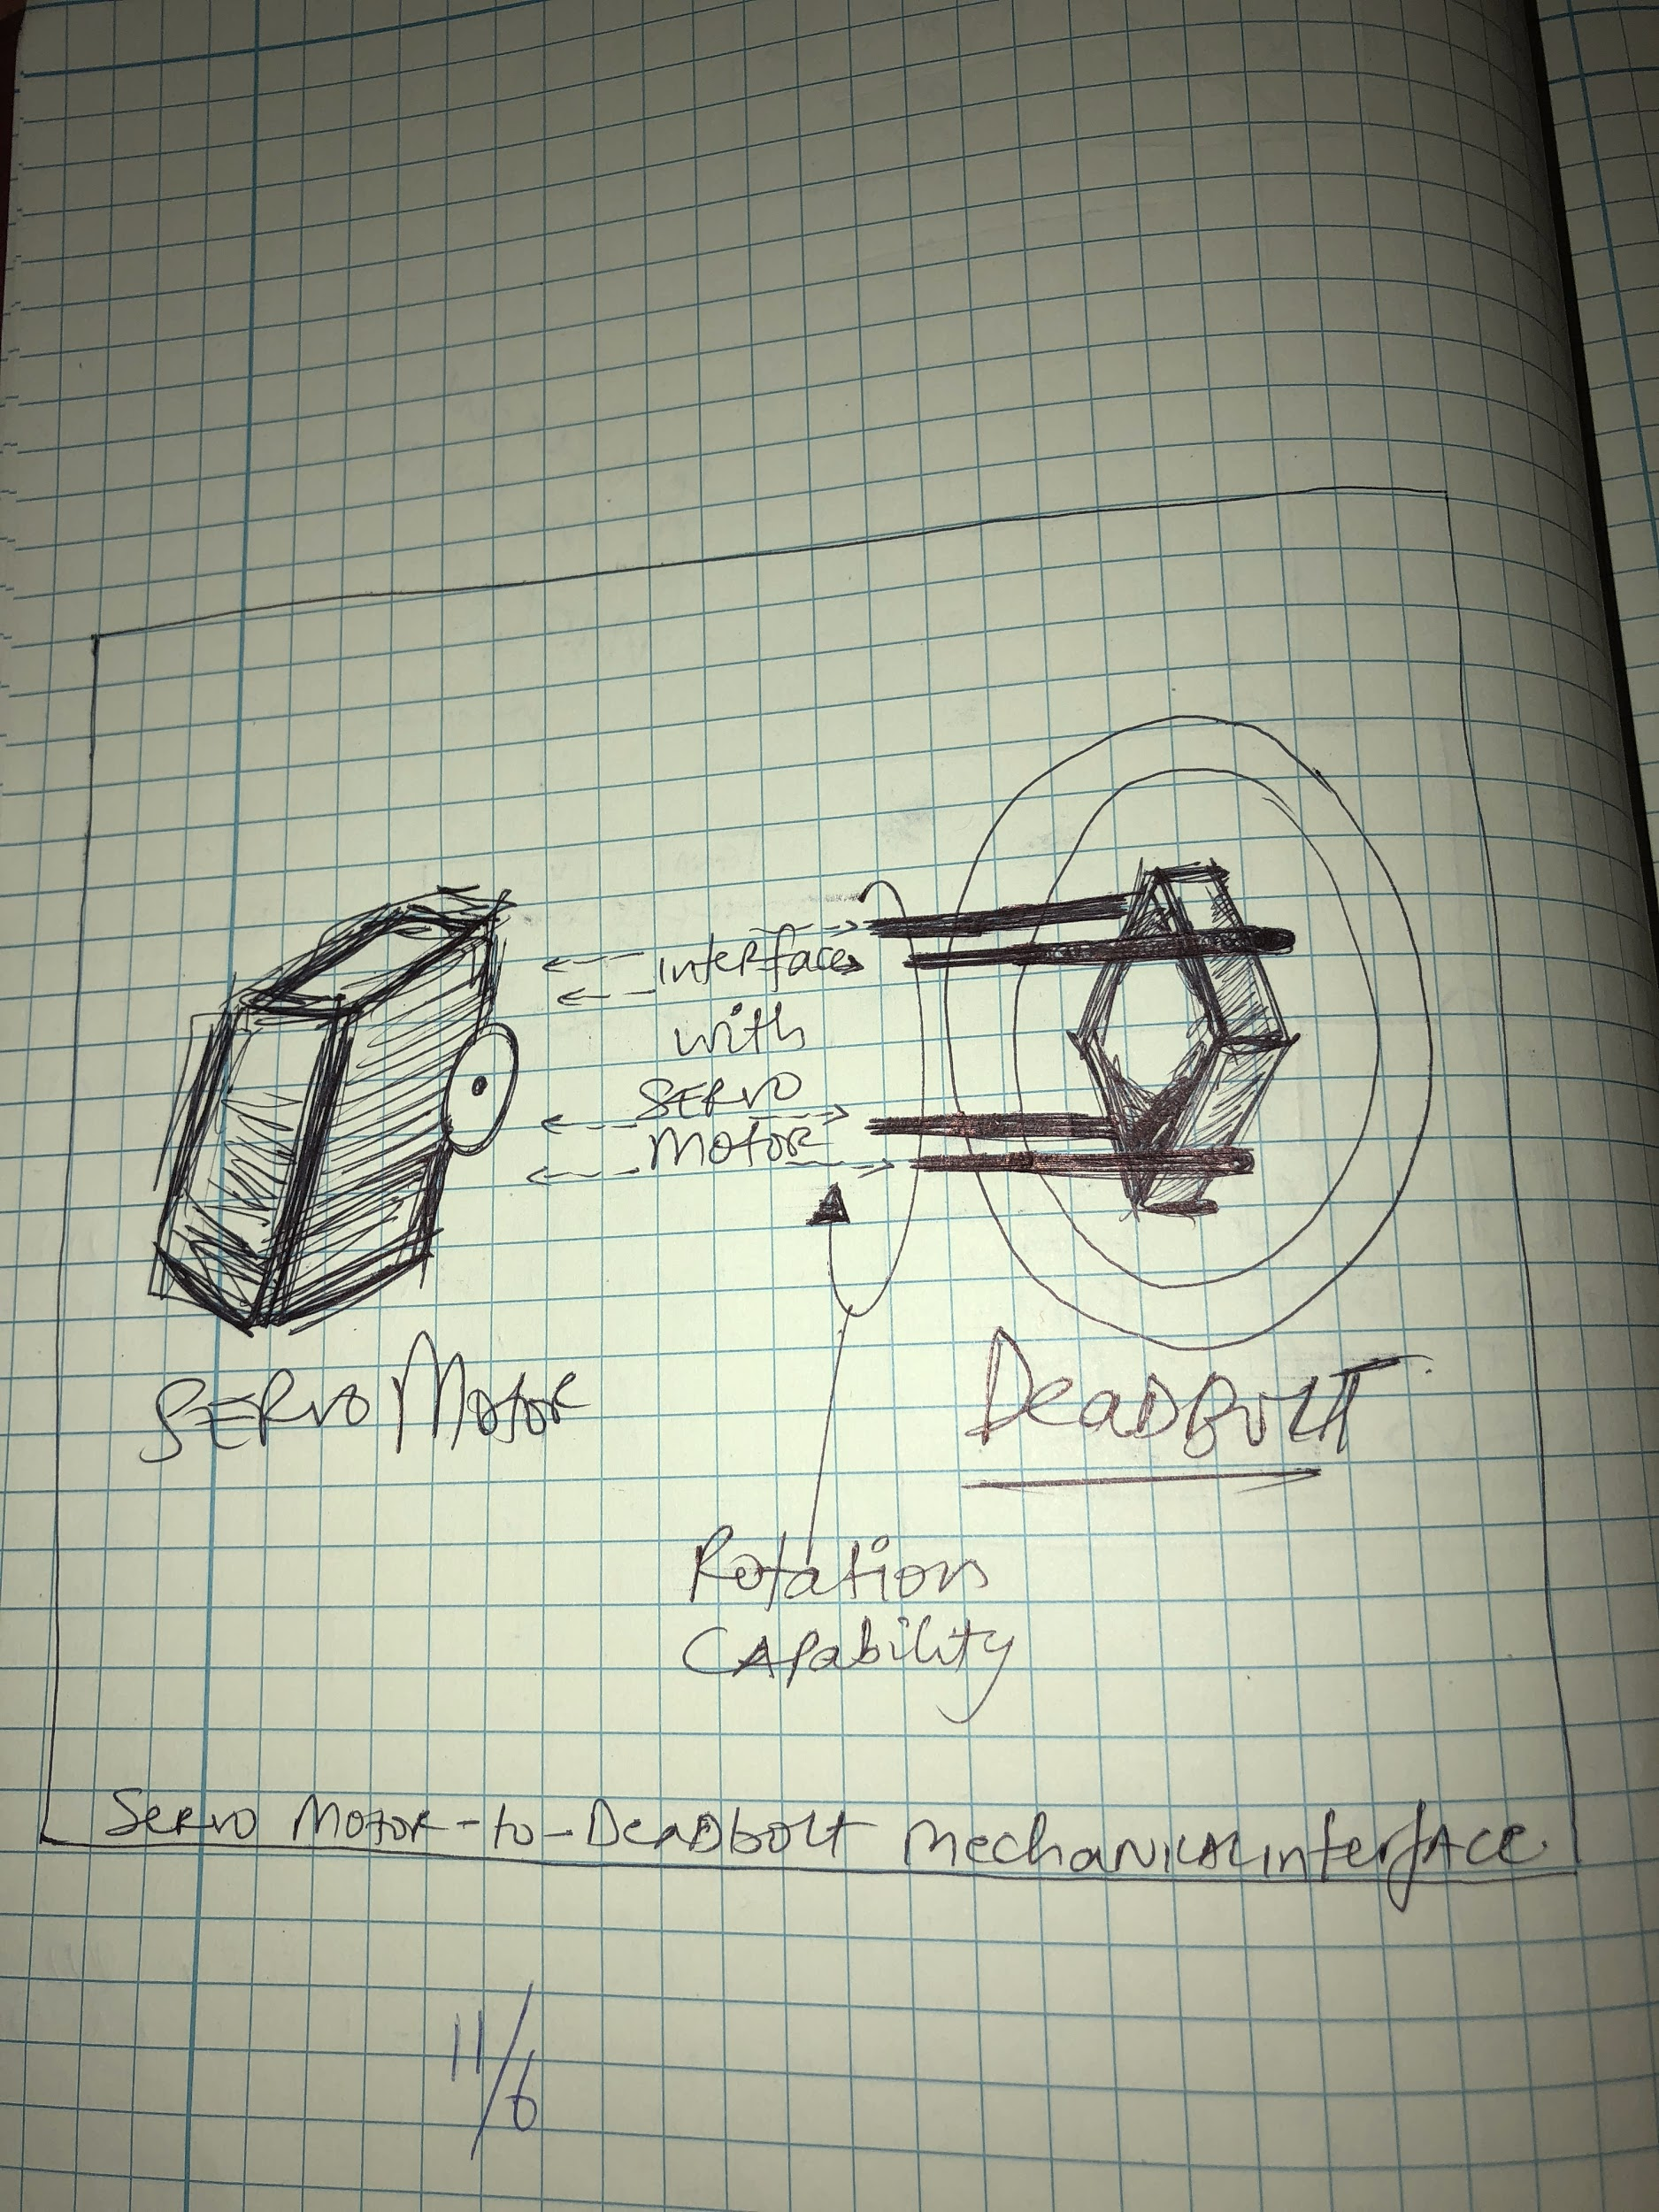 interface
with
SERVO
MOTOR
SERVO MOTOR
DeaDBOLT
Rotation
CAPability
SERVO MOTOR-to-DeaDbolt MechaNICAL interfACE
11/6